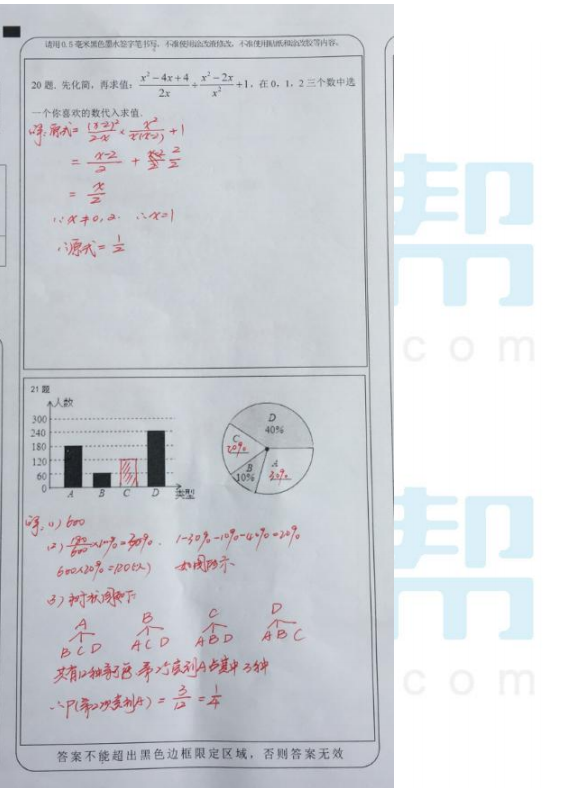 请用0.5毫米黑色墨水签字笔书写，不准使用涂改液修改，不准使用贴纸和涂改胶等内容。
20题. 先化简，再求值：(x²-4x+4)/(2x) ÷ (x²-2x)/x² +1，在 0，1，2 三个数中选
一个你喜欢的数代入求值.
解：原式= (x-2)²/(2x) × x²/(x(x-2)) +1
= (x-2)/2 + 2/2
= x/2
∵x≠0, 2. ∴x=1
∴原式= 1/2
21题
人数
300
240
180
120
60
0
A B C D 类型
D
40%
C
20%
B
10%
A
30%
解：(1) 600
(2) 180/600×100%=30%. 1-30%-10%-40%=20%
600×20%=120(人) 如图所示
(3) 树状图如下
A B C D
B C D A C D A B D A B C
共有12种等可能,第2个吃到A占其中3种
∴P(第2次吃到A) = 3/12 = 1/4
答案不能超出黑色边框限定区域，否则答案无效
邦
com
邦
com